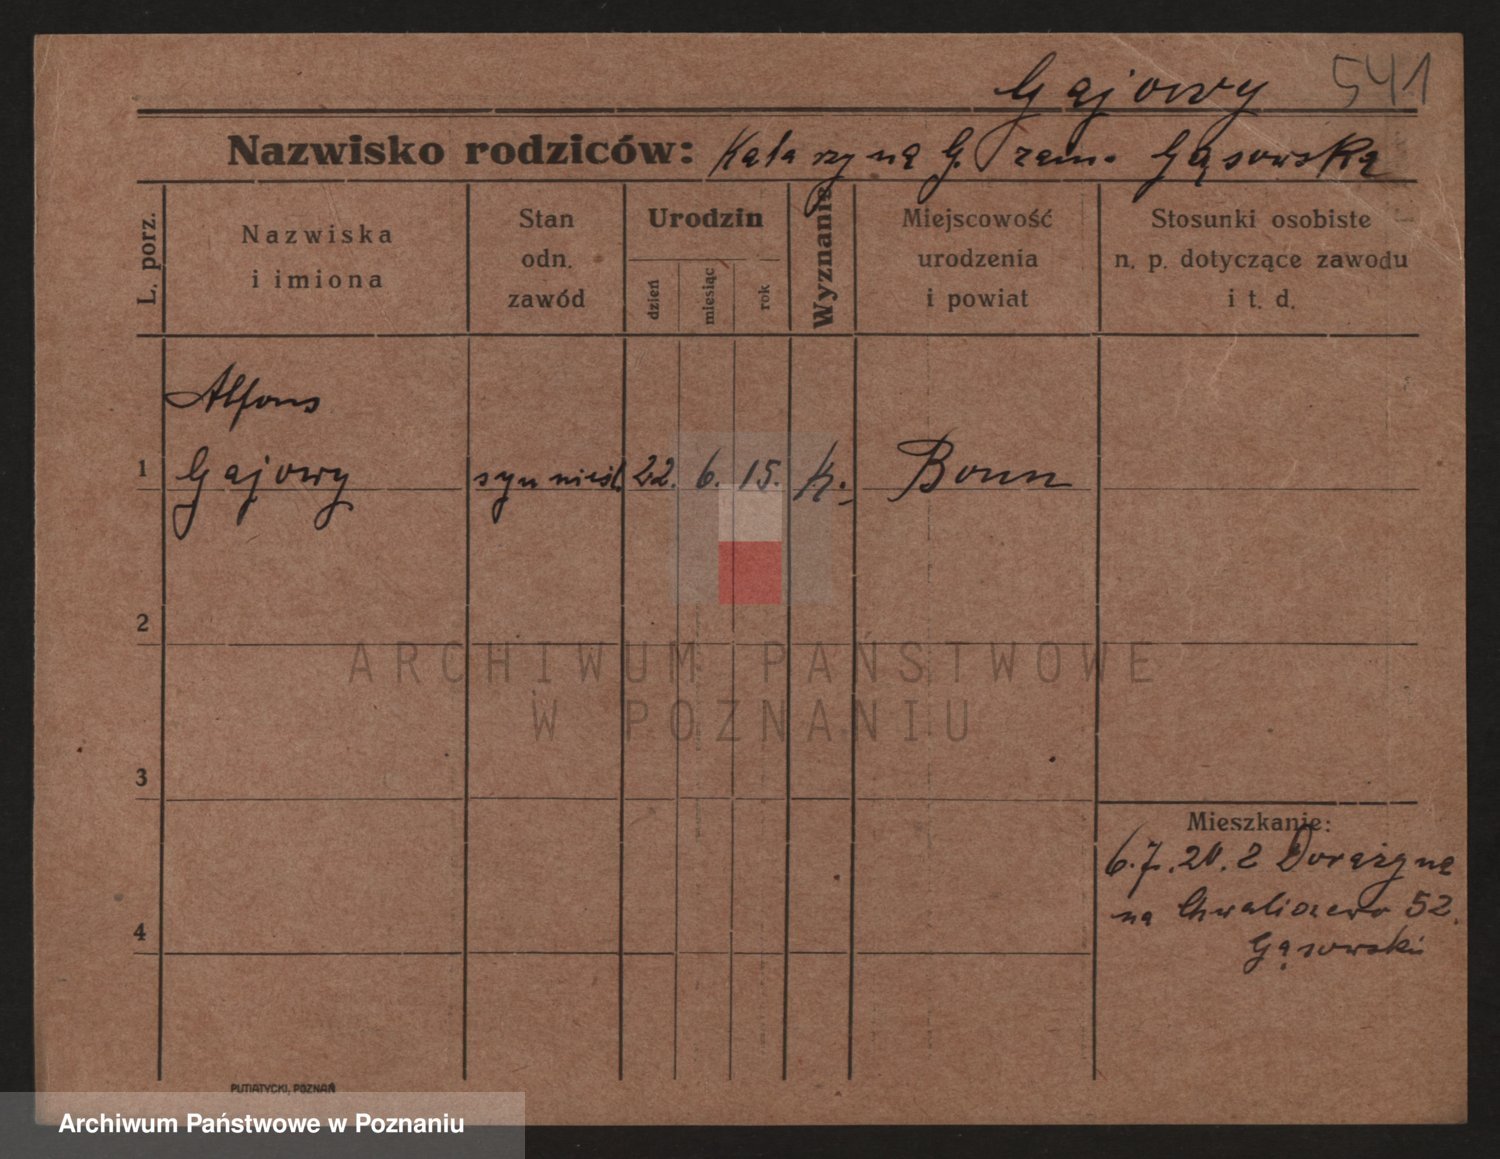 Gajowy 541
Nazwisko rodziców: Katarzyna G. zam. Gąsowska
L. porz.
Nazwiska
i imiona
Stan
odn.
zawód
Urodzin
dzień
miesiąc
rok
Wyznanie
Miejscowość
urodzenia
i powiat
Stosunki osobiste
n. p. dotyczące zawodu
i t. d.
Alfons
1 Gajowy syn nieśl. 22. 6. 15. k. Bonn
2
ARCHIWUM PAŃSTWOWE
W POZNANIU
3
Mieszkanie:
6.7.20. z
na Chwaliszewo 52.
4
Gąsowski
PUTIATYCKI, POZNAŃ
Archiwum Państwowe w Poznaniu